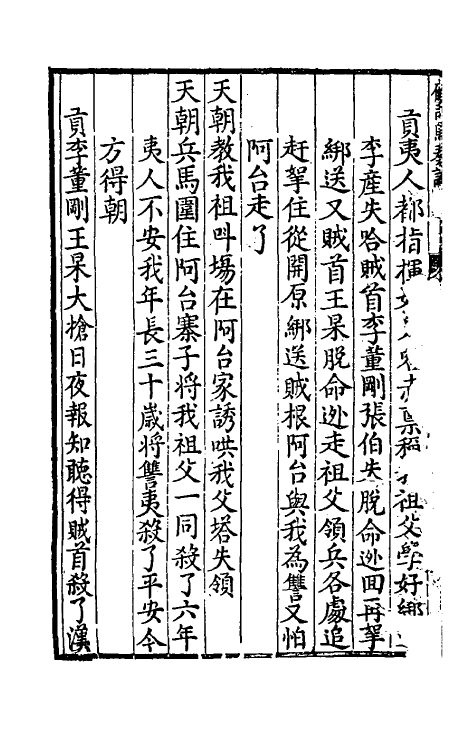 貢夷人都指揮禀稱祖父學好綁
李產失哈賊首李董剛張伯失脫命迯回再拏
綁送又賊首王杲脫命迯走祖父領兵各處追
赶拏住從開原綁送賊根阿台與我為讐又怕
阿台走了
天朝教我祖叫塲在阿台家誘哄我父塔失領
天朝兵馬圍住阿台寨子將我祖父一同殺了六年
夷人不安我年長三十歲將讐夷殺了平安今
方得朝
貢李董剛王杲大搶日夜報知聽得賊首殺了漢